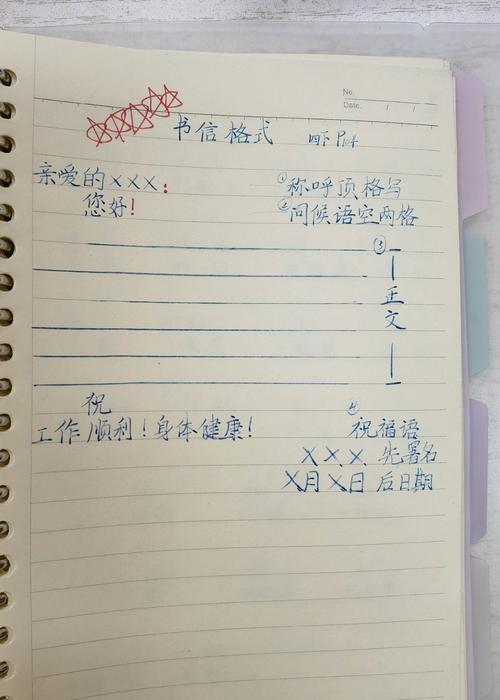 No.
Date. / /
书信格式 四下P104
亲爱的×××：
您好！
①称呼顶格写
②问候语空两格
③
正
文
祝
工作顺利！身体健康！
④
祝福语
×××先署名
×月×日 后日期